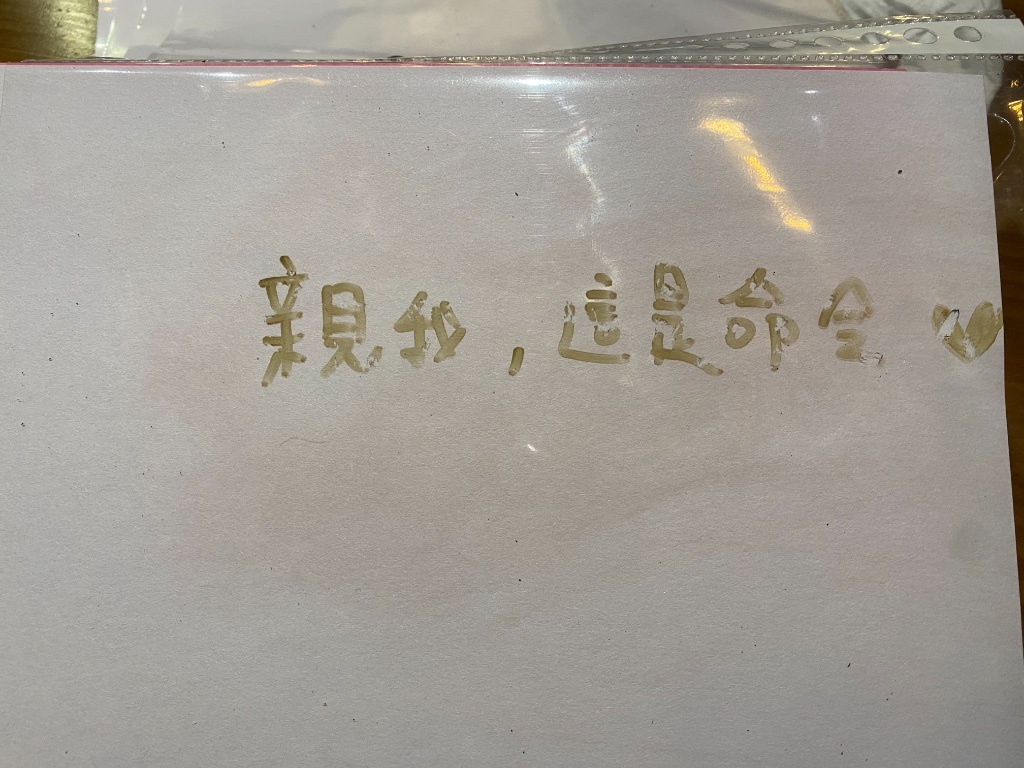 親我,這是命令♥